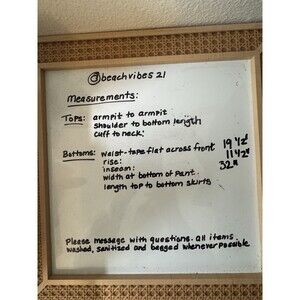 @beachvibes21
Measurements:
Tops: armpit to armpit
shoulder to bottom length
cuff to neck:
Bottoms: waist-tape flat across front 19 1/2"
rise: 11 1/2"
inseam: 32"
width at bottom of pant.
length top to bottom skirts
Please message with questions. All items
washed, sanitized and bagged whenever possible